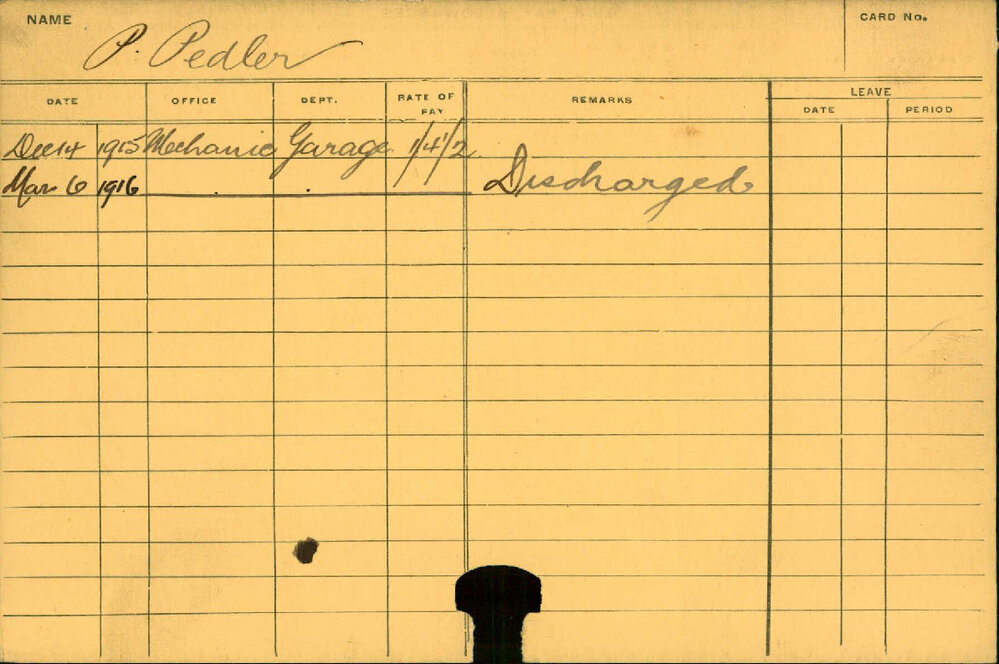 NAME
P. Pedler
CARD No.
DATE OFFICE DEPT. RATE OF PAY REMARKS LEAVE
DATE PERIOD
Dec 14 1915 Mechanic Garage 1/4/2
Mar 6 1916 Discharged